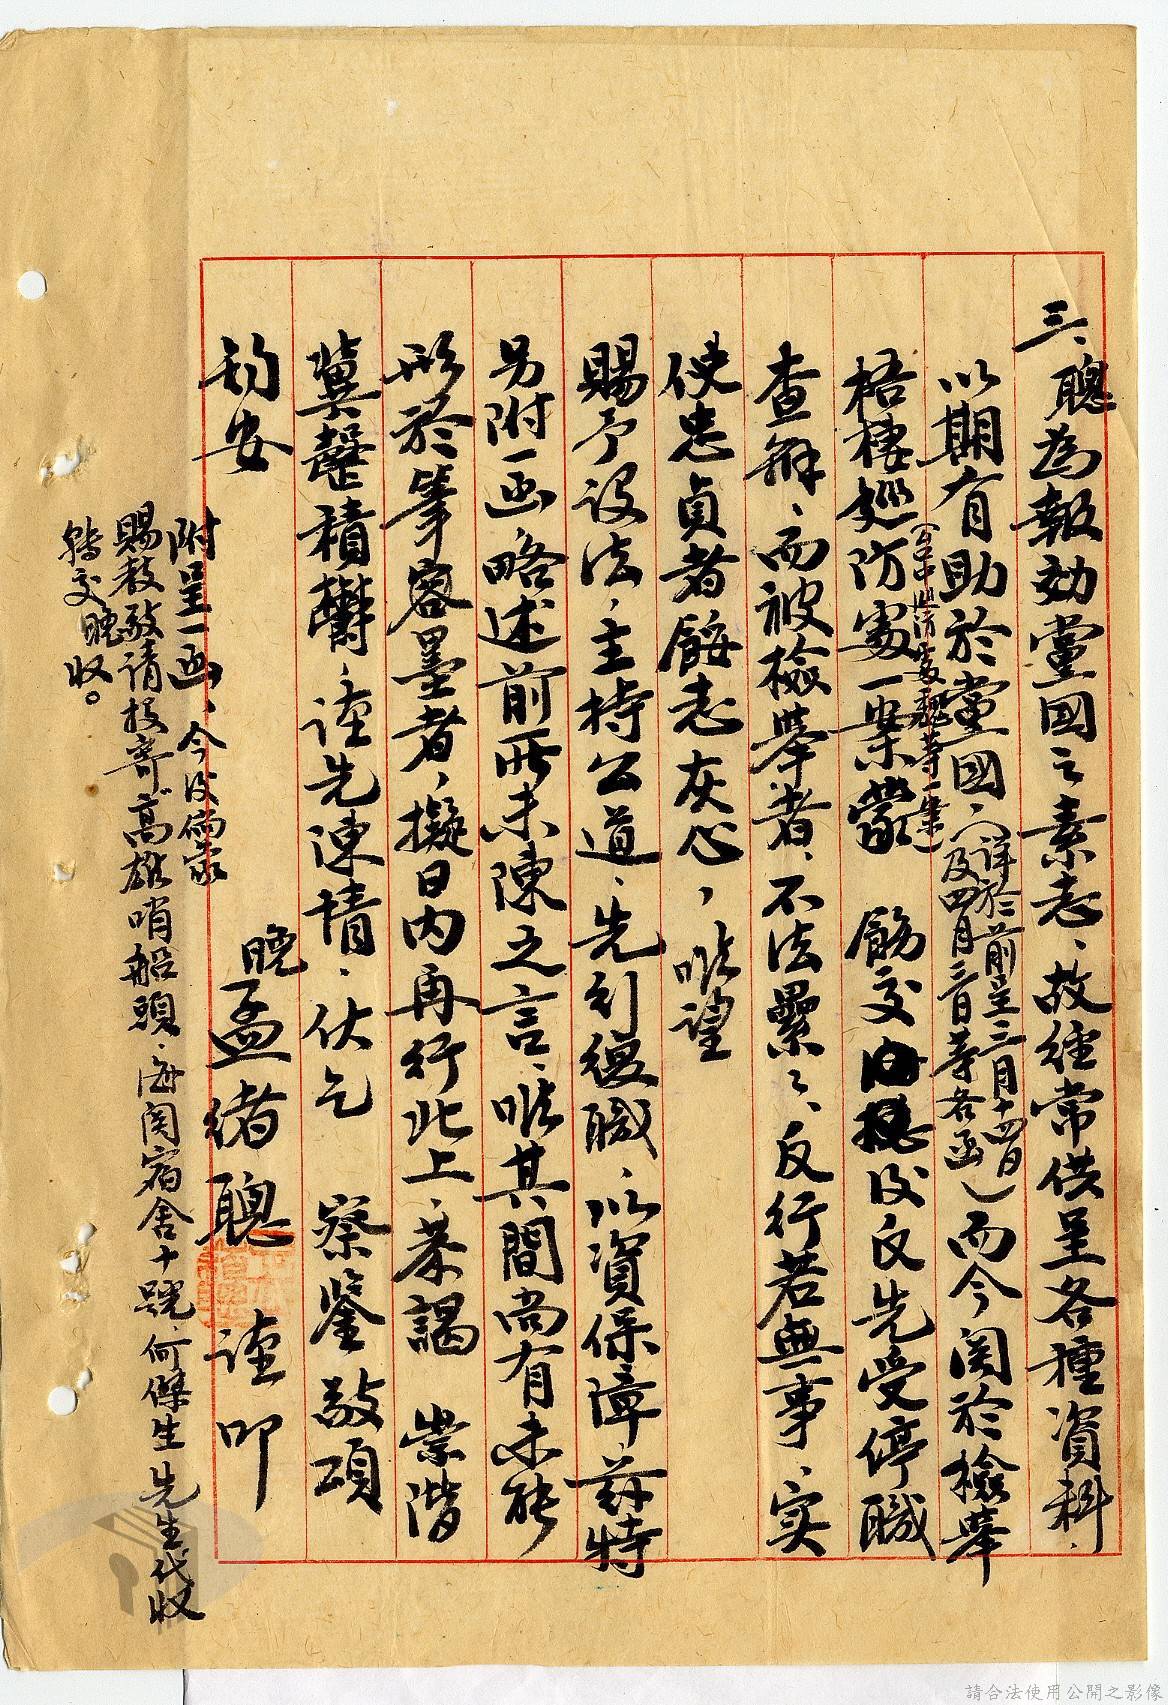 三、聰為報効黨國之素志、故經常供呈各種資料、
以期有助於黨國、(詳於前呈三月十四日及四月三日等各函)而今関於檢舉
梧棲巡防處一案(台中巡防處魏等一案)蒙 飭交 後反先受停職
查辦、而被檢舉者、不法纍々、反行若無事、实
使忠貞者餒志灰心，惟望
賜予設法、主持公道、先行復職、以資保障、茲特
另附一函略述前所未陳之言、惟其間尚有未能
形於筆容墨者，擬日內再行北上、恭謁 崇階
冀罄積鬱、謹先陳情、伏乞 察鑒 敬頌
鈞安
晚 孟緒聰 謹叩
附呈一函、今後倘蒙
賜教敬請投寄高雄哨船頭、海関宿舍十號何傑生先生代收
轉交晚收。
請合法使用公開之影像